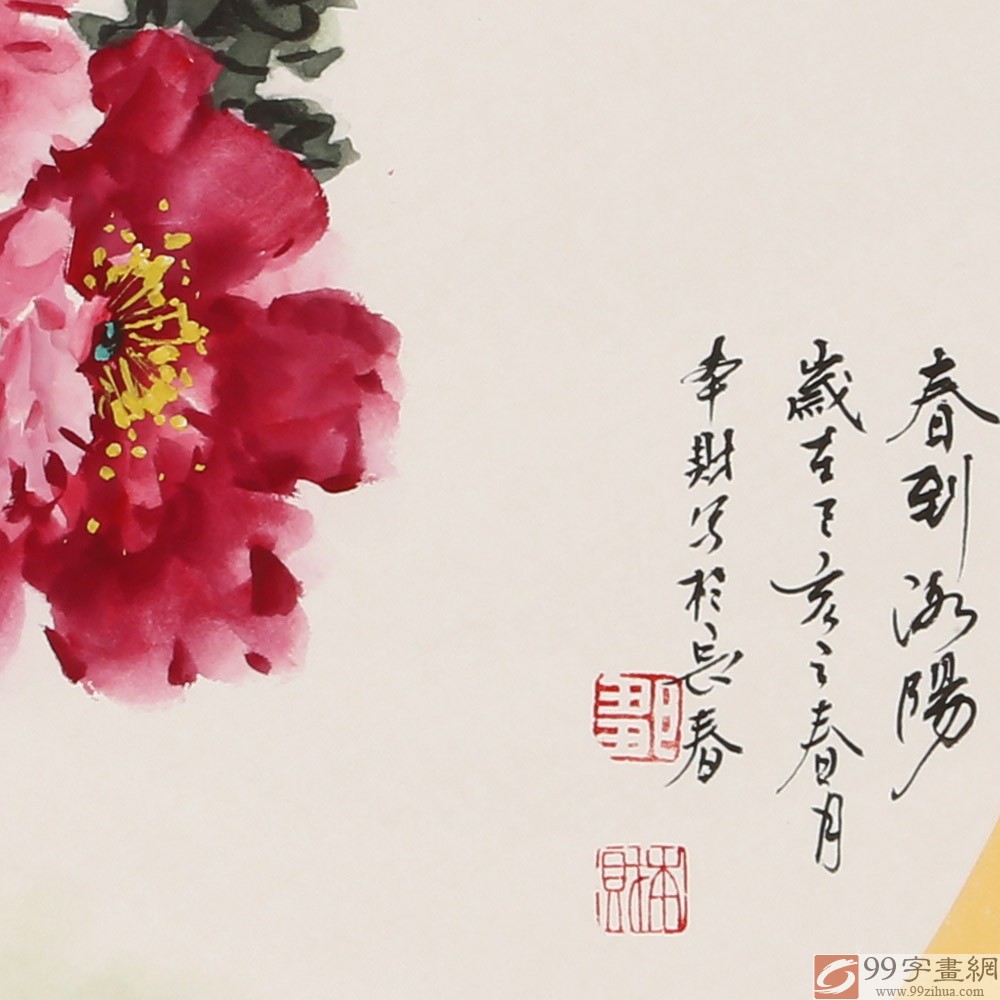 春到洛陽
歲在己亥之春月
本財写於長春
本財
99字畫網
www.99zihua.com